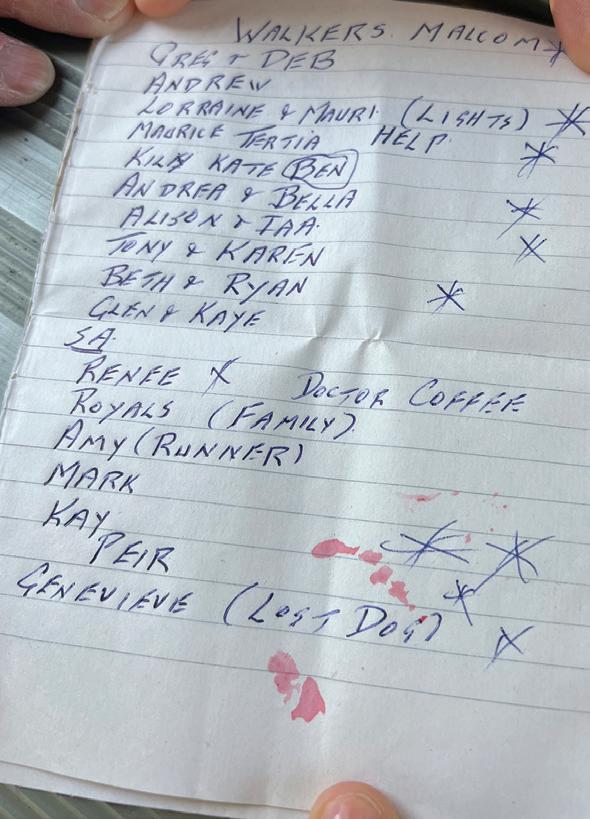 WALKERS. MALCOM
GREG & DEB
ANDREW
LORRAINE & MAURI (LIGHTS)
MAURICE TERTIA HELP.
KATE BEN
ANDREA & BELLA
ALISON &
TONY & KAREN
BETH & RYAN
GLEN & KAYE
SA.
RENEE X DOCTOR COFFEE
ROYALS (FAMILY)
AMY (RUNNER)
MARK
KAY
PEIR
GENEVIEVE (LOST DOG)